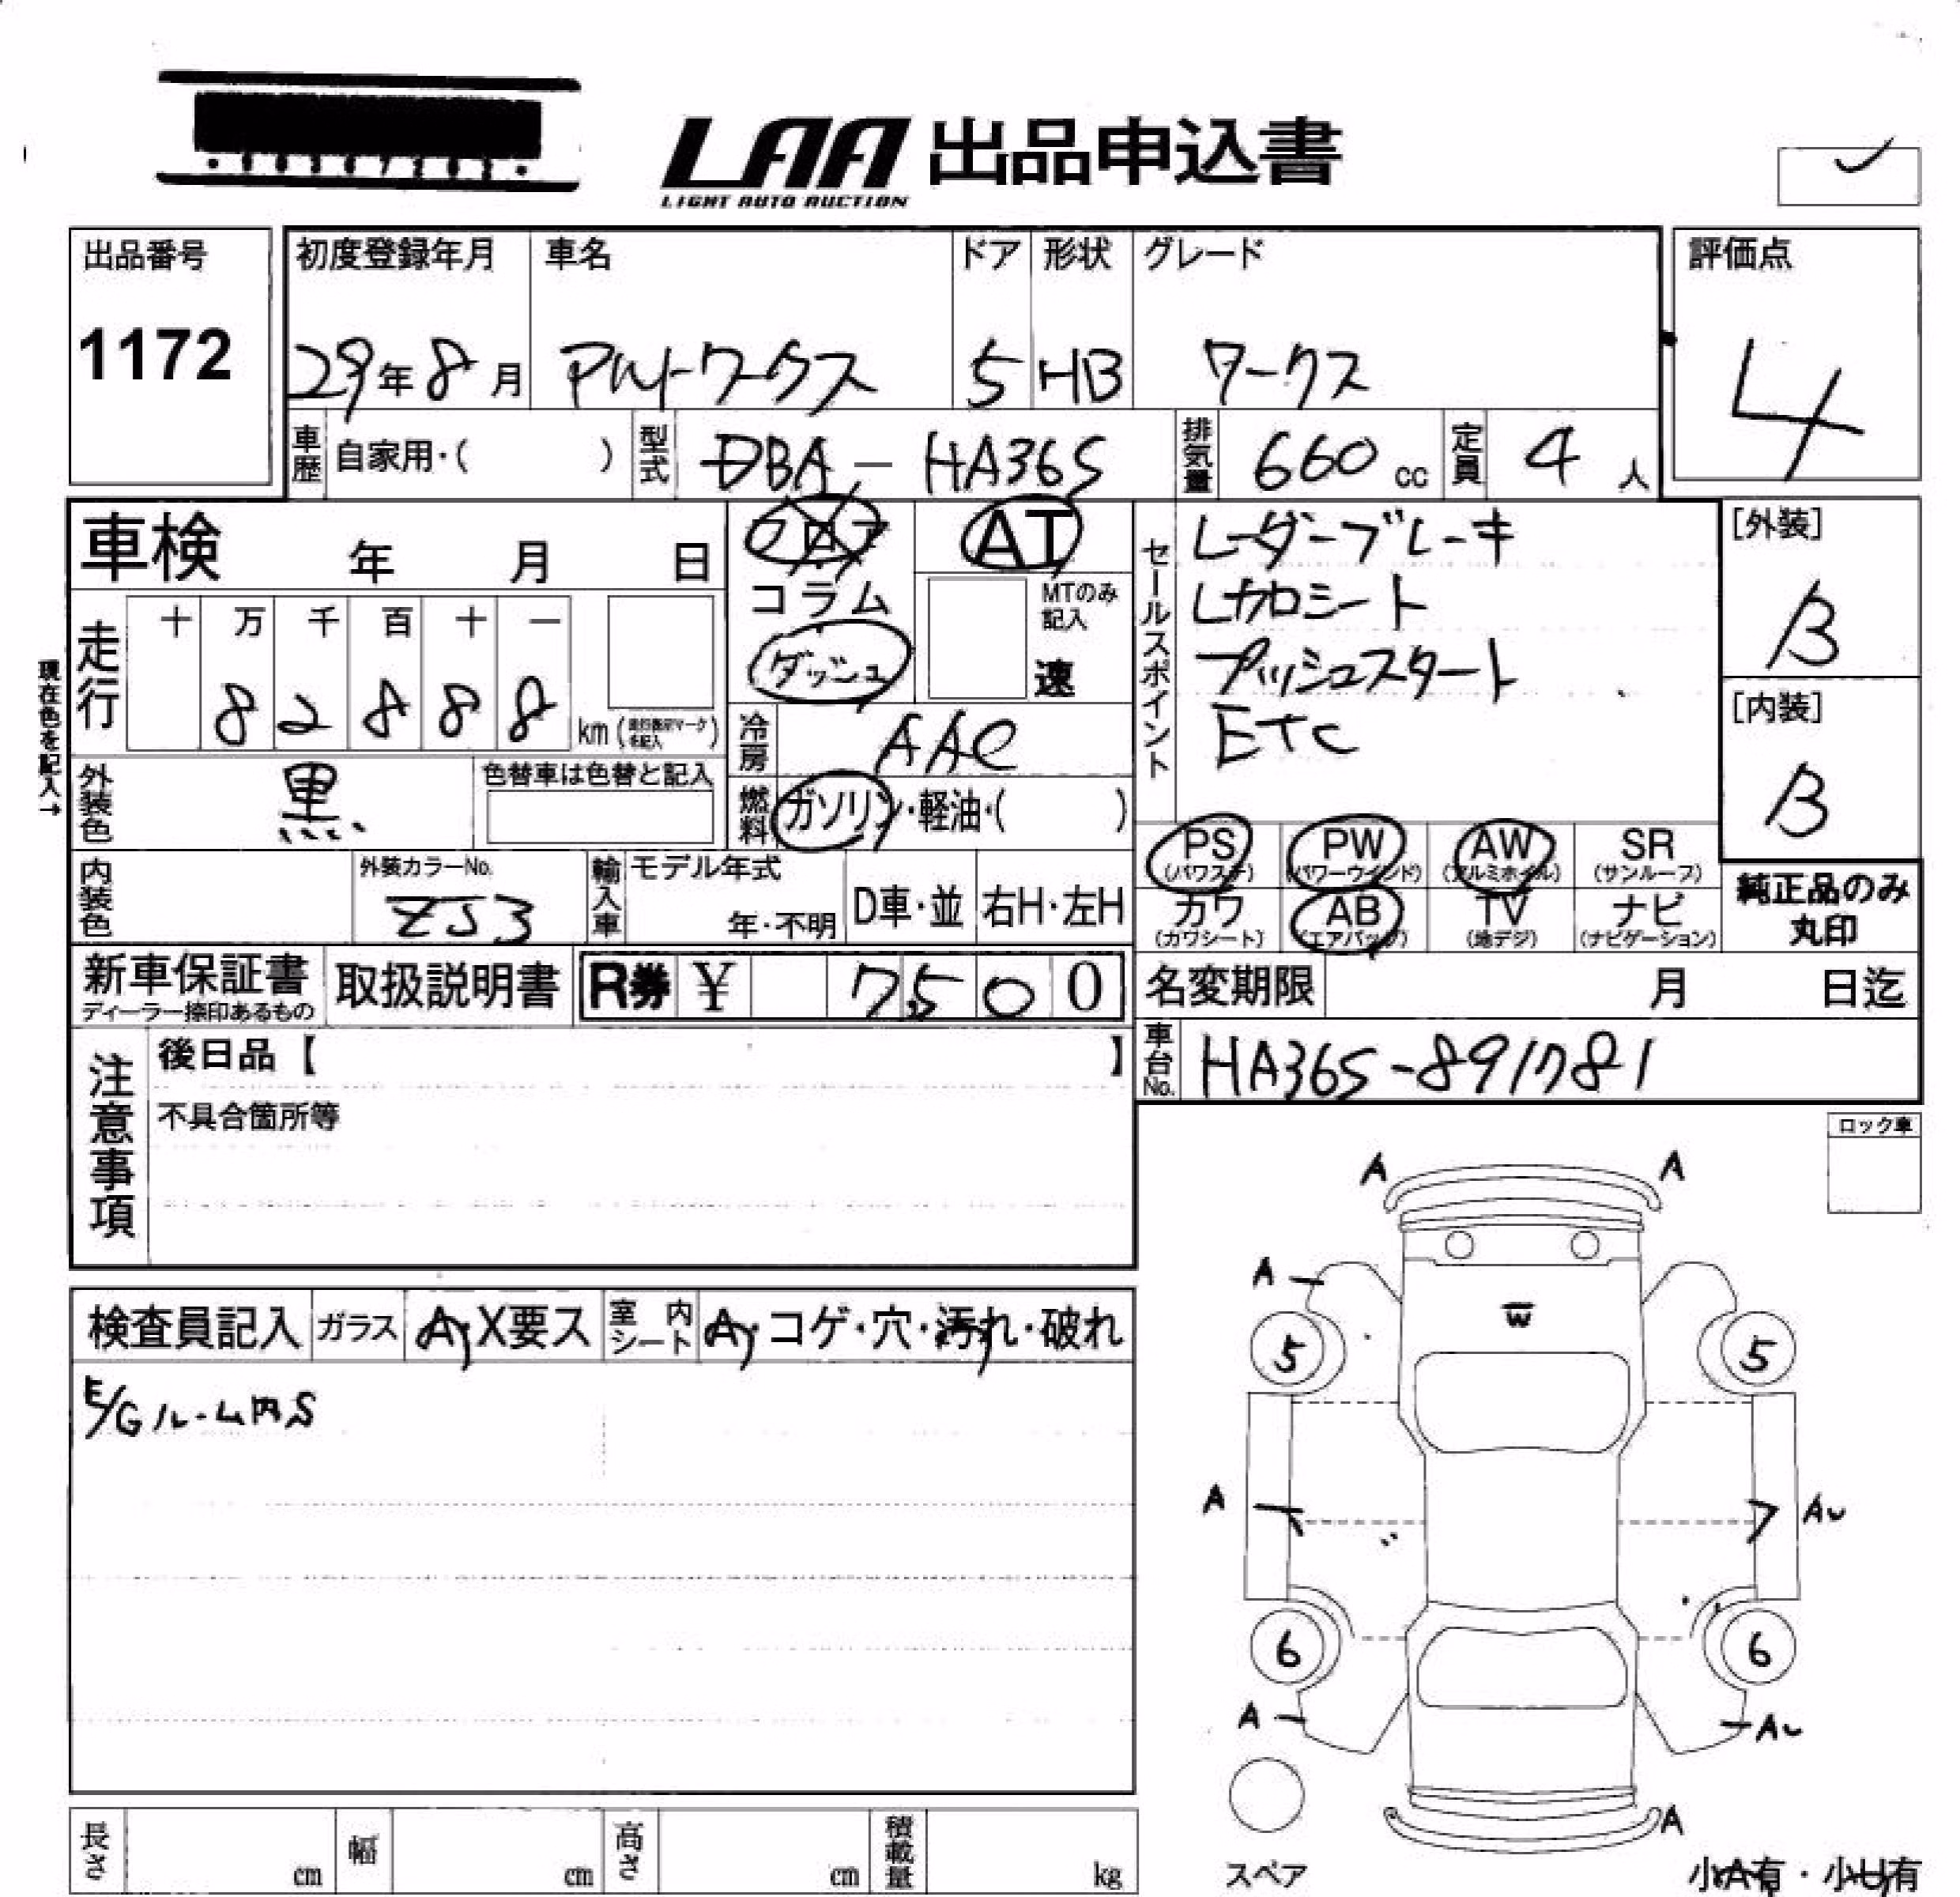 LAA 出品申込書
LIGHT AUTO AUCTION
出品番号
1172
初度登録年月
29年8月
車名
アルトワークス
ドア
5
形状
HB
グレード
ワークス
評価点
4
車歴
自家用・( )
型式
DBA - HA36S
排気量
660 cc
定員
4 人
車検 年 月 日
フロア
コラム
ダッシュ
AT
MTのみ
記入
速
セールスポイント
レーダーブレーキ
レカロシート
プッシュスタート
ETC
[外装]
B
[内装]
B
現在色を記入→
走行
十 万 千 百 十 一
8 2 8 8 8
km
冷房
AAC
外装色
黒
色替車は色替と記入
燃料
ガソリン・軽油・( )
PS PW AW SR
(パワステ) (パワーウインド) (アルミホイル) (サンルーフ)
カワ AB TV ナビ
(カワシート) (エアバッグ) (地デジ) (ナビゲーション)
純正品のみ
丸印
内装色
外装カラーNo.
ZJ3
輸入車
モデル年式
年・不明
D車・並
右H・左H
新車保証書
ディーラー捺印あるもの
取扱説明書
R券 ¥ 7500
名変期限 月 日迄
車台No.
HA36S-891781
注意事項
後日品【 】
不具合箇所等
ロック車
検査員記入
ガラス
A・X要ス
室内
シート
A・コゲ・穴・汚れ・破れ
E/Gルーム内S
A A
A
W
5 5
A AU
6 6
A AU
A
スペア
小A有・小U有
長さ cm
幅 cm
高さ cm
積載量 kg